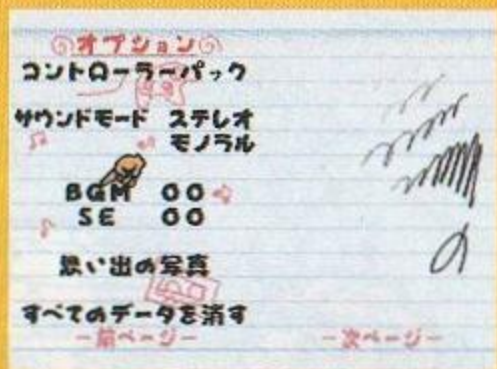 オプション
コントローラーパック
サウンドモード ステレオ
モノラル
BGM 00
SE 00
思い出の写真
すべてのデータを消す
-前ページ- -次ページ-